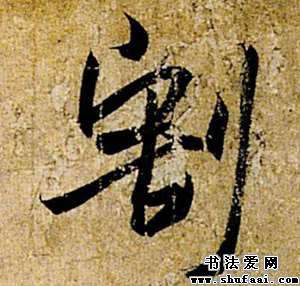 割
书法爱网
www.shufaai.com